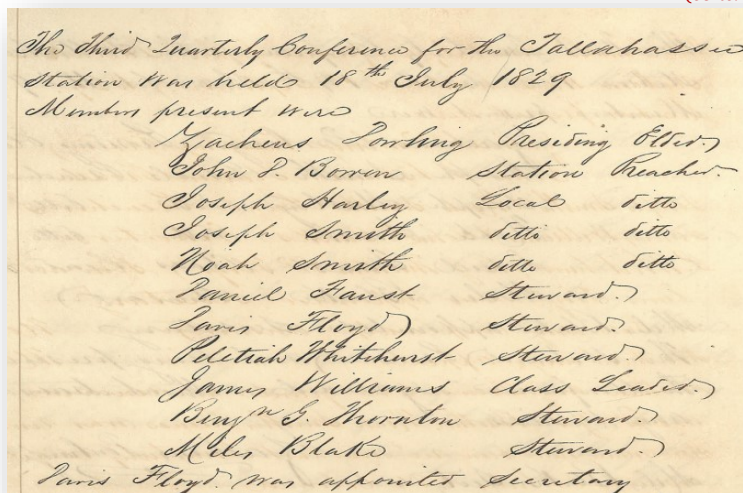 The Third Quarterly Conference for the Tallahassee
Station was held 18th July 1829
Members present were
Zacheus Dowling Presiding Elder.
John F. Bowen Station Preacher.
Joseph Harley Local ditto
Joseph Smith ditto ditto
Noah Smith ditto ditto
Daniel Faust Steward.
Davis Floyd Steward.
Peletiah Whitehurst Steward.
James Williams Class Leader.
Benjn G. Thornton Steward.
Miles Blake Steward.
Davis Floyd. was appointed Secretary